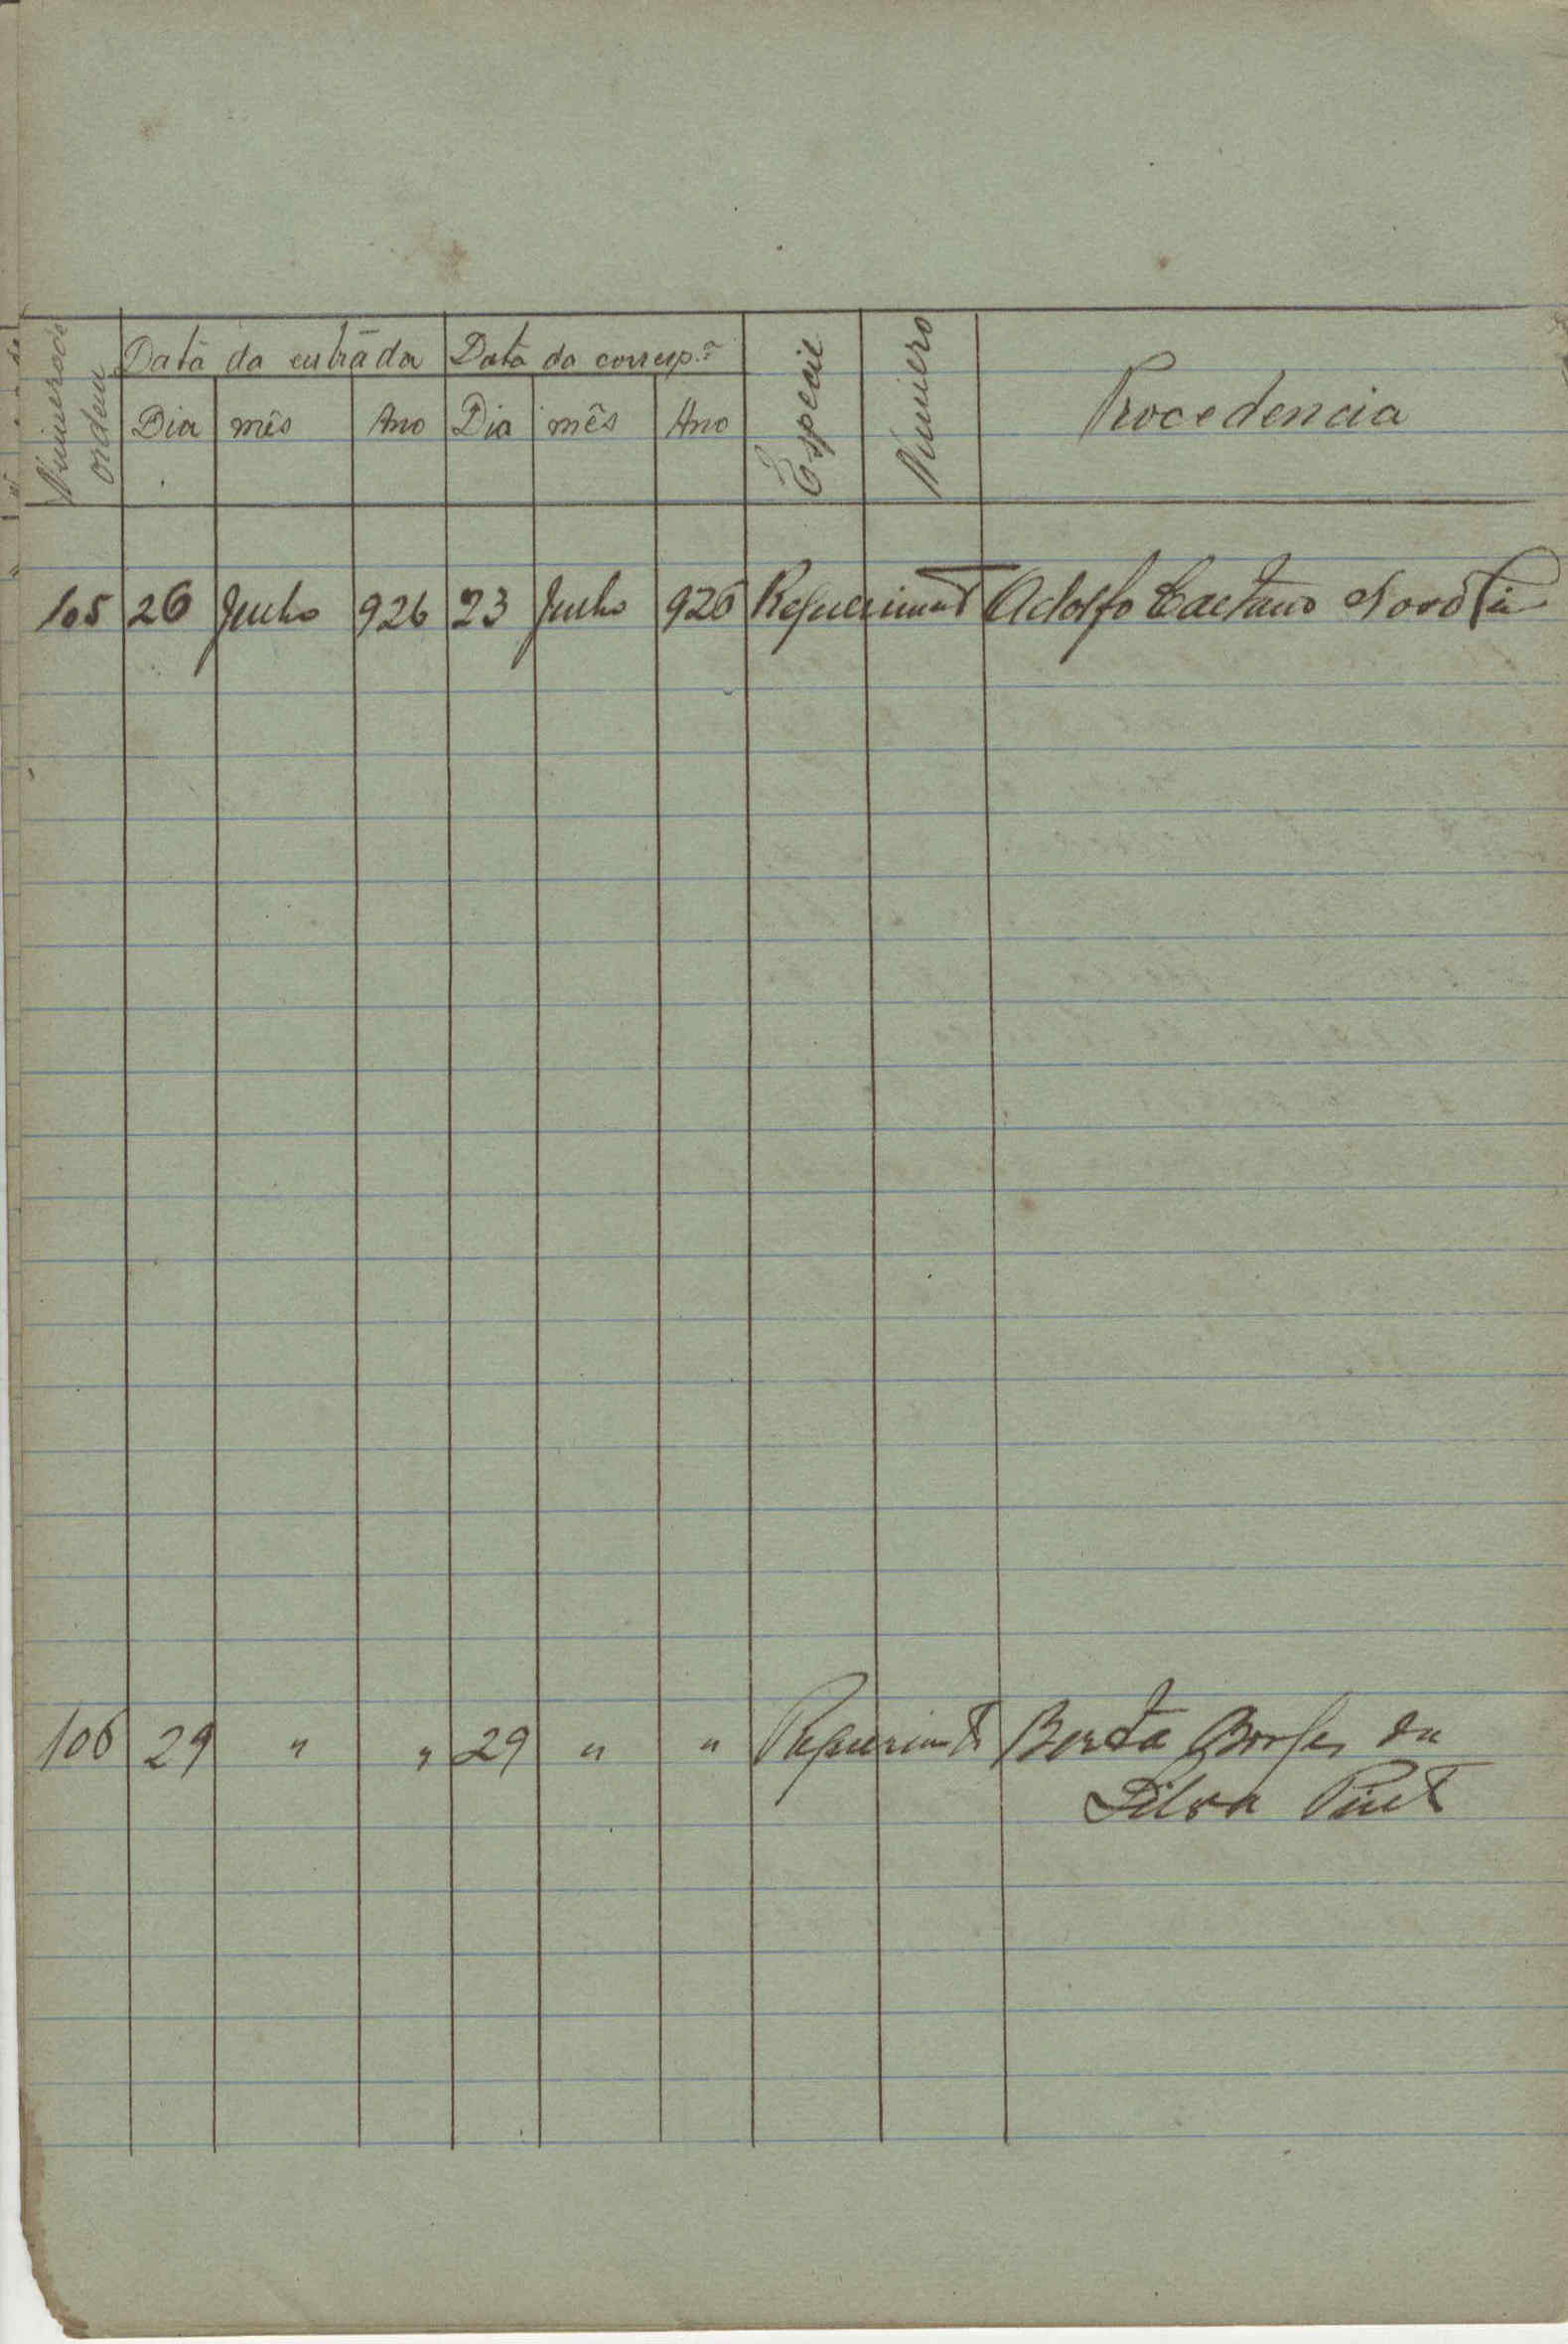 Numero de ordem
Data da entrada Data da corresp.ª
Dia mês Ano Dia mês Ano
Especie
Numero
Procedencia
105 26 Junho 926 23 Junho 926 Requerimento Adolfo Caetano
106 29 " " 29 " " Requerimto Berta Borges da
Silva Pinto